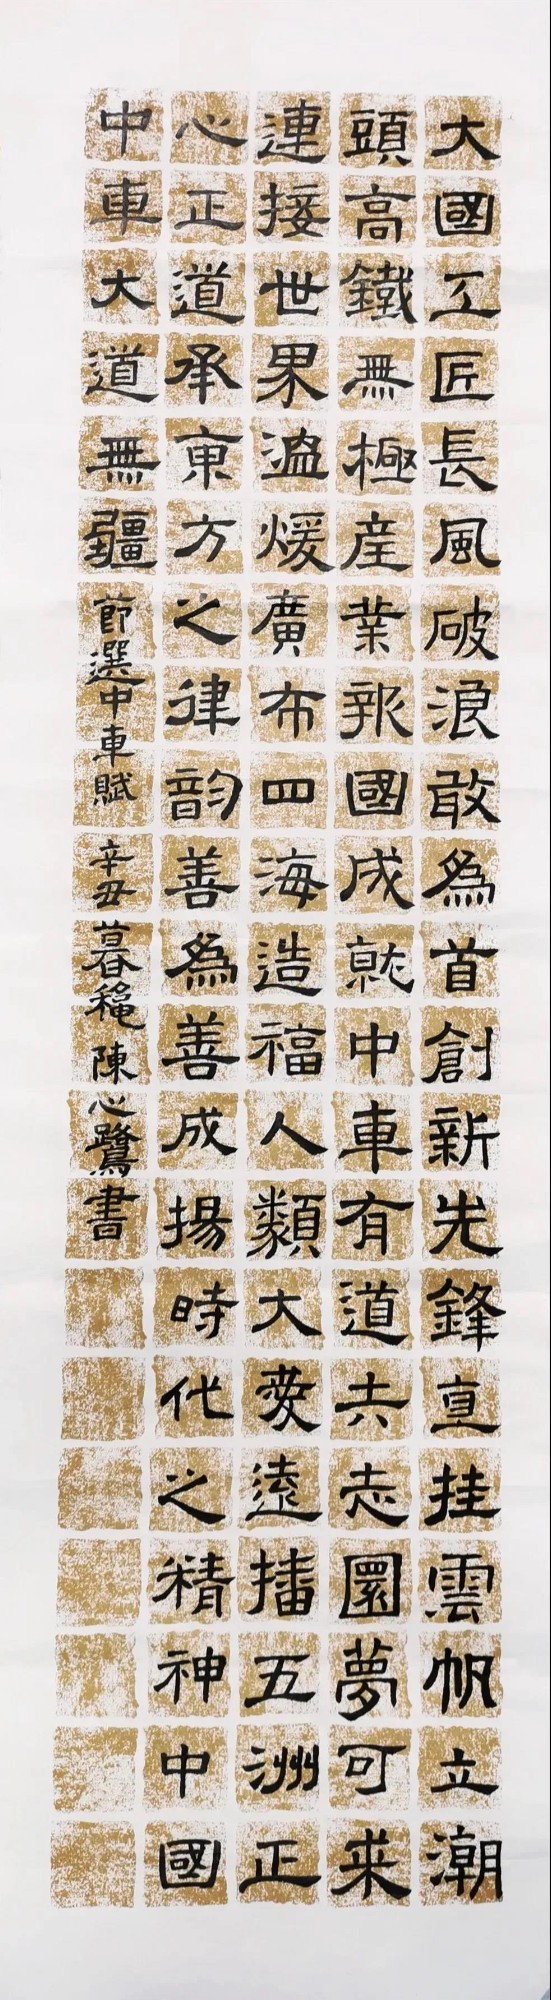 大國工匠長風破浪敢為首創新先鋒直挂雲帆立潮
頭高鐵無極産業報國成就中車有道大志圆夢可来
連接世界溫煖廣布四海造福人類大愛遠播五洲正
心正道承東方之律韵善為善成揚時代之精神中國
中車大道無疆
節選中車賦 辛丑暮穐 陳心鷺書